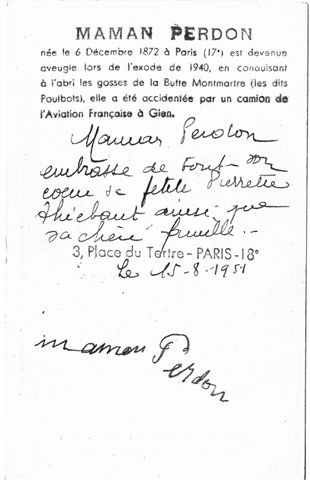 MAMAN PERDON
née le 6 Décembre 1872 à Paris (17ᵉ) est devenue
aveugle lors de l'exode de 1940, en conduisant
à l'abri les gosses de la Butte Montmartre (les dits
Poulbots), elle a été accidentée par un camion de
l'Aviation Française à Gien.
Maman Perdon
embrasse de tout son
coeur sa petite Pierrette
Thiébaut ainsi que
sa chère famille.-
3, Place du Tertre - PARIS-18ᵉ
Le 15-8-1951
maman
Perdon